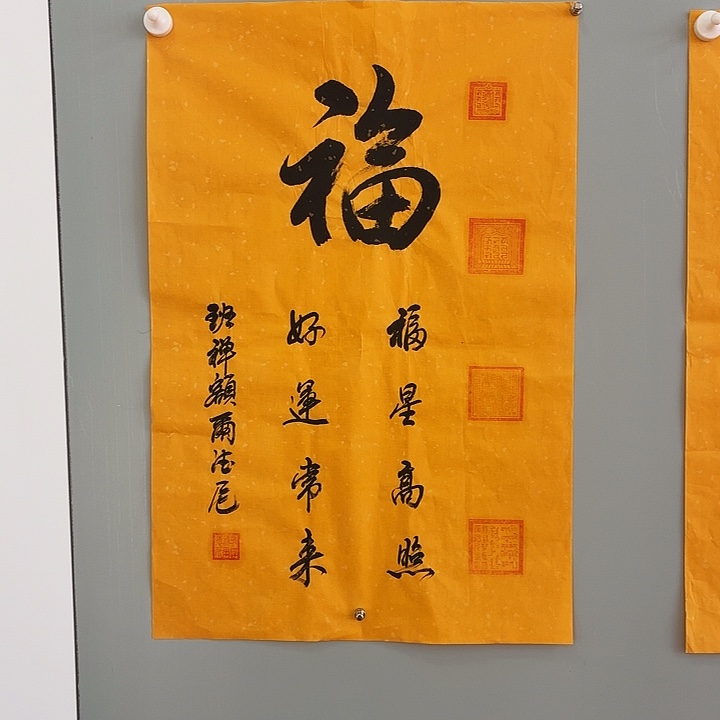 福
福星高照
好運常来
班禅額爾法尼